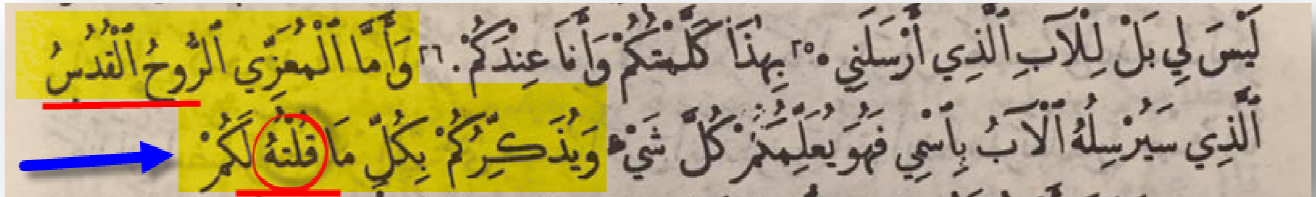 لَيْسَ لِي بَلْ لِلْآبِ ٱلَّذِي أَرْسَلَنِي. ٢٥ بِهٰذَا كَلَّمْتُكُمْ وَأَنَا عِنْدَكُمْ. ٢٦ وَأَمَّا ٱلْمُعَزِّي ٱلرُّوحُ ٱلْقُدُسُ
ٱلَّذِي سَيُرْسِلُهُ ٱلْآبُ بِٱسْمِي فَهُوَ يُعَلِّمُكُمْ كُلَّ شَيْءٍ وَيُذَكِّرُكُمْ بِكُلِّ مَا قُلْتُهُ لَكُمْ